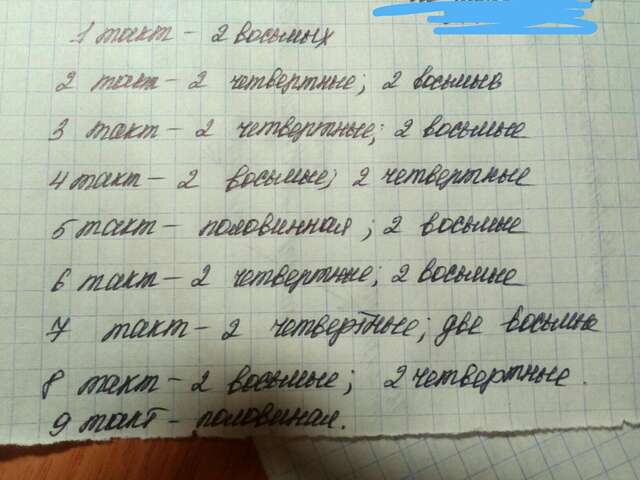 1 такт – 2 восьмых
2 такт – 2 четвертные; 2 восьмыв
3 такт – 2 четвертные; 2 восьмые
4 такт – 2 восьмые; 2 четвертные
5 такт – половинная; 2 восьмые
6 такт – 2 четвертные; 2 восьмые
7 такт – 2 четвертные; две восьмые
8 такт – 2 восьмые; 2 четвертные.
9 такт – половиная.